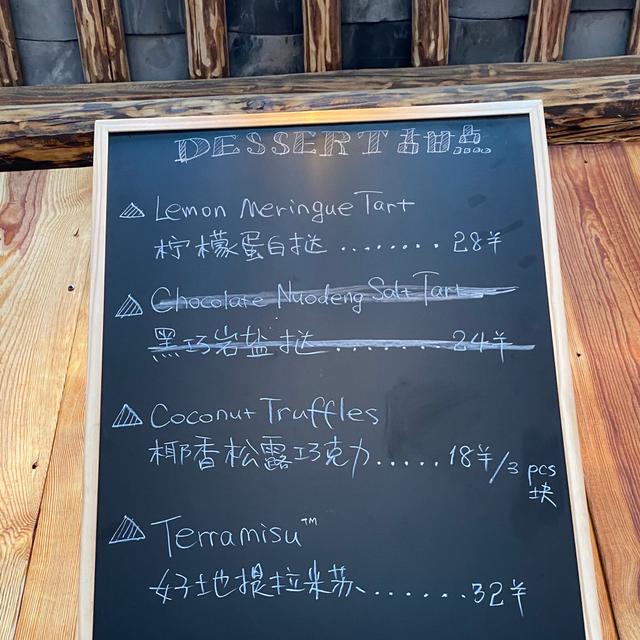 DESSERT 甜点
Lemon Meringue Tart
柠檬蛋白挞 ........ 28半
Chocolate Nuodeng Salt Tart
黑巧岩盐挞 ........ 24半
Coconut Truffles
椰香松露巧克力 ..... 18半/3 pcs
块
Terramisu™
好地提拉米苏 ....... 32半